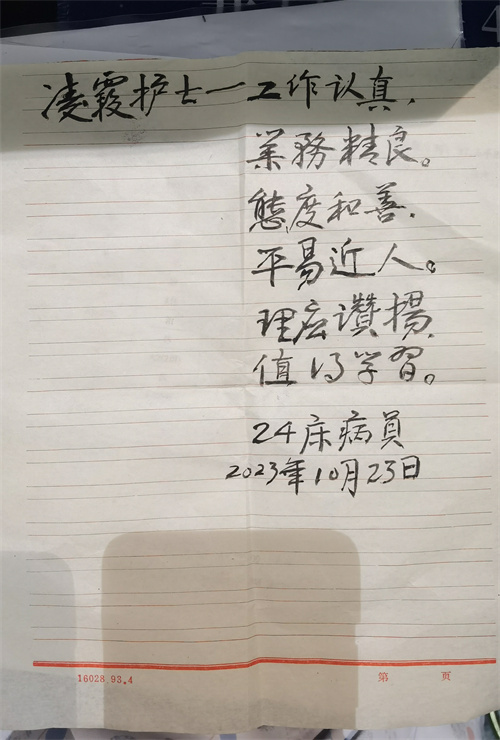 凌霞护士一工作认真，
業務精良。
態度和善，
平易近人。
理应讚揚，
值得学習。
24床病員
2023年10月23日
16028 93.4
第 页